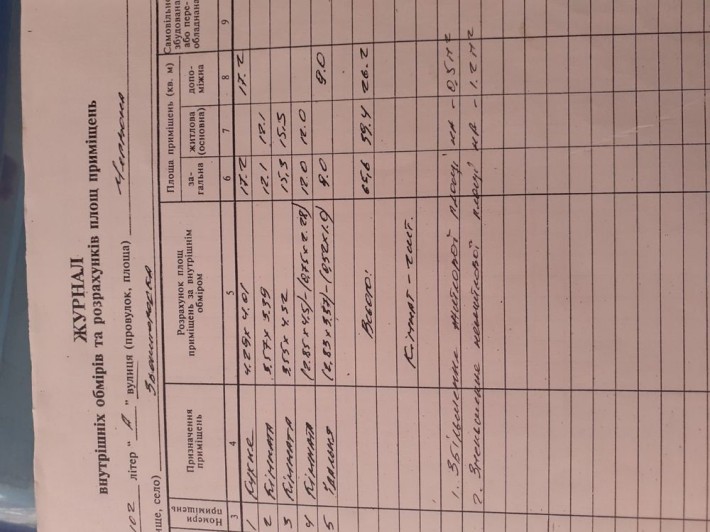 ЖУРНАЛ
внутрішніх обмірів та розрахунків площ приміщень
літер " А " вулиця (провулок, площа)
ище, село) Звенигородка
Номери приміщень
Призначення приміщень
Розрахунок площ приміщень за внутрішнім обміром
Площа приміщень (кв. м)
за- гальна
житлова (основна)
допо- міжна
Самовільно збудована або пере- обладнана
3 4 5 6 7 8 9
1 Кухня 4.29 x 4.01 17.2 17.2
2 Кімната 3,57 x 3,39 12.1 12.1
3 Кімната 3,55 x 4.32 15,3 15.3
4 Кімната 12.0 12.0
5 9.0 9.0
Всього: 65,6 39,4 26.2
1. Збільшення житлової площі на - 0,5 м2
2. Зменшення нежитлової площі на - 1.2 м2